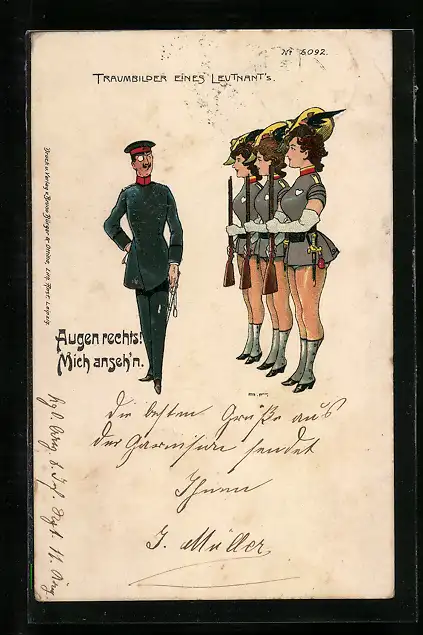 Nr 6092.
TRAUMBILDER EINES LEUTNANT'S.
Druck u. Verlag v. Bruno Bürger & Ottillie, Lith. Anst. Leipzig.
Augen rechts!
Mich anseh'n.
Die besten Grüße aus
der Garnison sendet
Ihnen
J. Müller